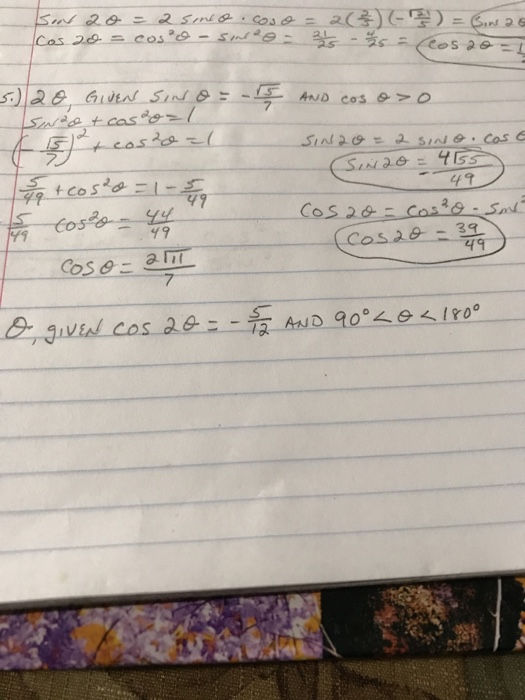 Sin 2θ = 2 sinθ · cosθ = 2(2/5)(-√21/5) = Sin 2θ
Cos 2θ = cos²θ - sin²θ = 21/25 - 4/25 = cos 2θ =
5.) 2θ, GIVEN SIN θ = -√5/7 AND cos θ > 0
Sin²θ + cos²θ = 1
(-√5/7)² + cos²θ = 1
5/49 + cos²θ = 1 - 5/49
5/49 cos²θ = 44/49
cos θ = 2√11/7
SIN 2θ = 2 sin θ · cos θ
SIN 2θ = -4√55/49
Cos 2θ = cos²θ - Sin²
Cos 2θ = 39/49
θ, gIVEN cos 2θ = -5/12 AND 90° < θ < 180°